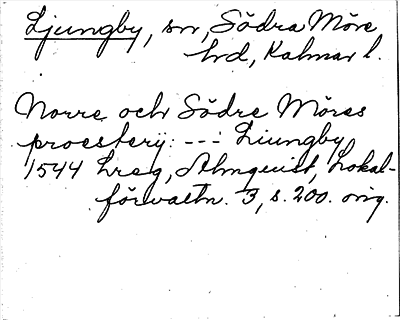 Ljungby, sn, Södra Möre
hd, Kalmar l.
Norre och Södre Möres
proesterij: --- Liungby
1544 Lreg, Almquist, Lokal-
förvaltn. 3, s. 200. orig.